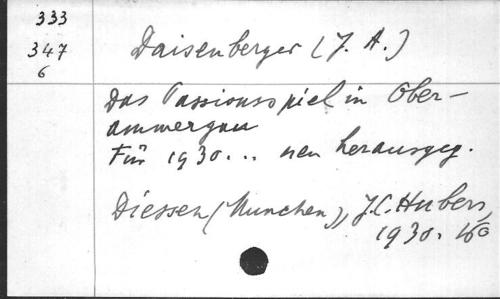 333
347
6
Daisenberger (J. A.)
Das Passionsspiel in Ober-
ammergau
Für 1930... neu herausgeg.
Diessen (Munchen), J.C. Hubers,
1930. 16°